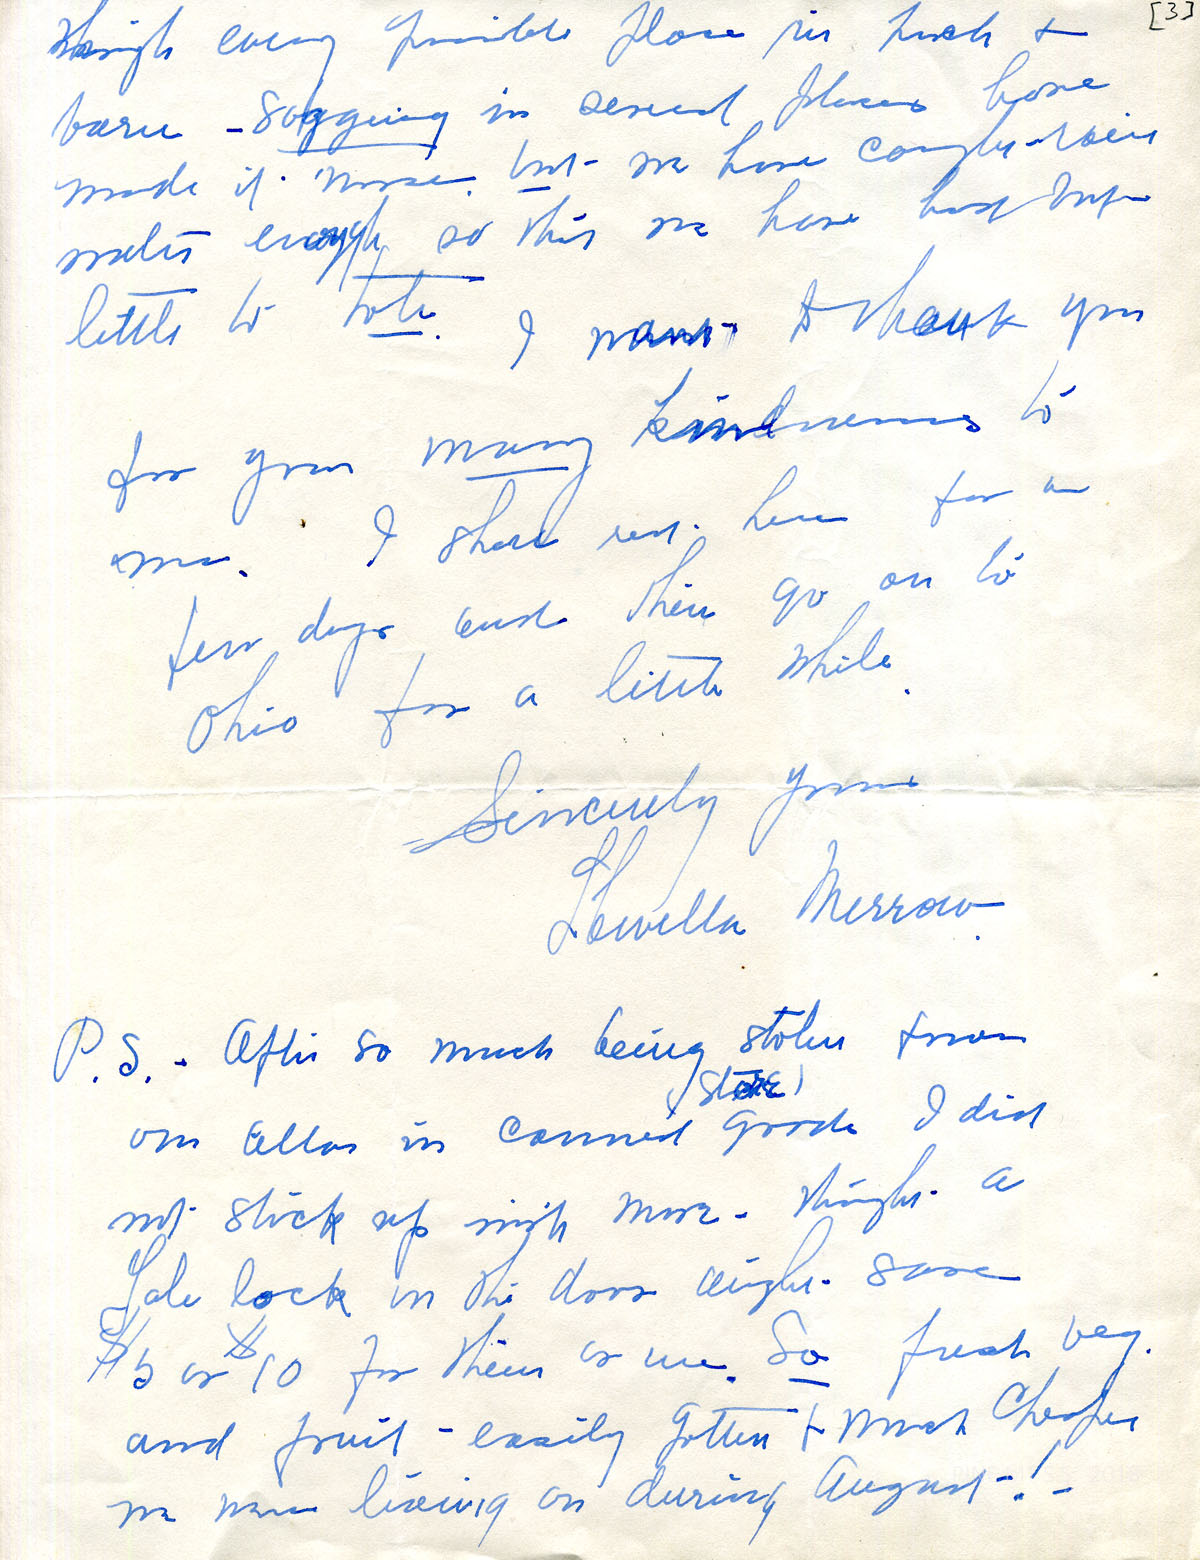 [3]
through every possible place in back &
barn - sagging in several places have
made it worse, but we have caught rain
water enough so this we have had
little to tote. I want to thank you
for your many kindnesses to
me. I shall rest here for a
few days and then go on to
Ohio for a little while.
Sincerely yours
Llewella Merrow.
P.S. - After so much being stolen from
(store)
our cellar in canned goods I did
not stick up with more - thought a
Yale lock in the door might save
$5 or $10 for them or me. So fresh veg.
and fruit - easily gotten & much cheaper
we were living on during August - ! -